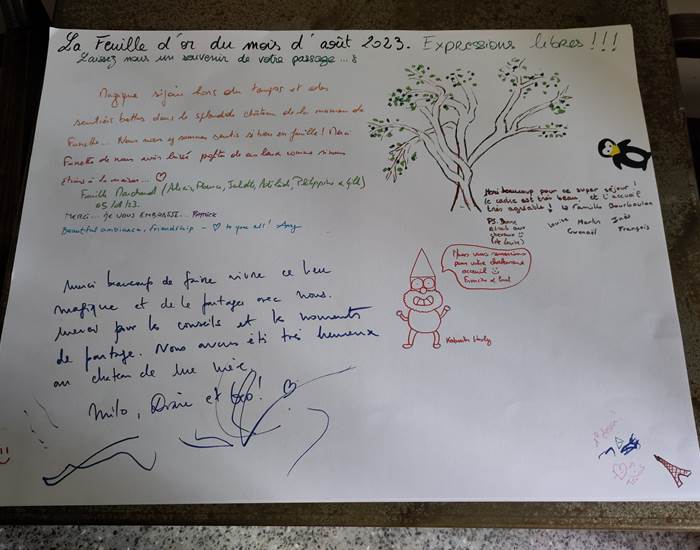 La Feuille d'or du mois d'août 2023. Expressions libres !!!
Laissez nous un souvenir de votre passage...
Magique séjour hors du temps et des
sentiers battus dans le splendide château de la maman de
Funette... Nous nous y sommes sentis si bien en famille ! Merci
Funette de nous avoir laissé profiter de ce lieu comme si nous
étions à la maison... ♡
Famille Marchand
05/08/23.
Merci... je vous embrasse... Patrick
Beautiful ambiance, friendship - ♡ to you all! Amy
Merci beaucoup de faire vivre ce lieu
magique et de le partager avec nous.
Merci pour les conseils et les moments
de partage. Nous avons été très heureux
au château de
Milo, et
Merci beaucoup pour ce super séjour !
le cadre est très beau, et l'accueil
très agréable ! La Famille Bourboulon
PS: Bisous aux chevaux
(de Louise)
Louise Martin Inès
Gwenaël François
Nous vous remercions
pour votre chaleureux
accueil